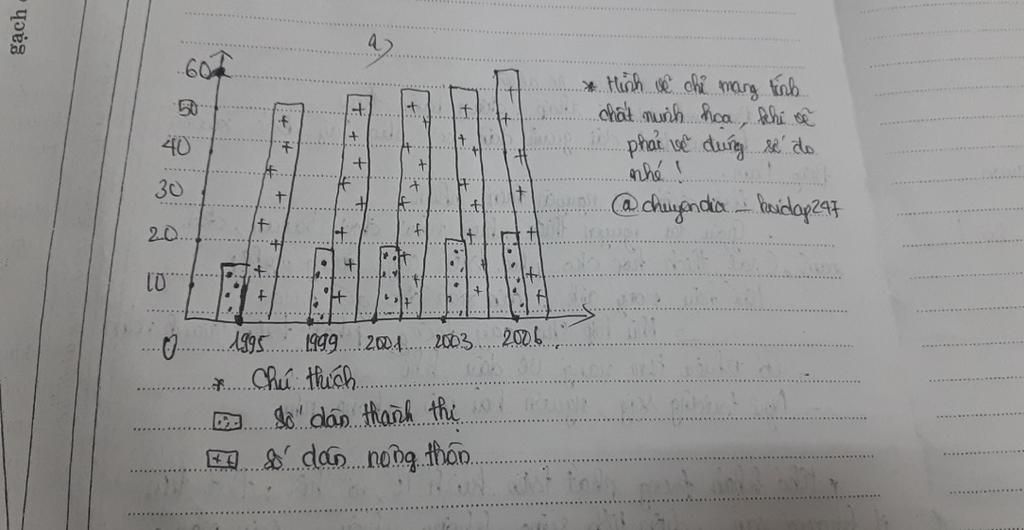 gạch
a)
60
50
40
30
20
10
0
1995 1999 2001 2003 2006
* Hình vẽ chỉ mang tính
chất minh họa, khi vẽ
phải vẽ đúng số đo
nhé!
@chuyendia_hoidap247
* Chú thích
số dân thành thị
số dân nông thôn